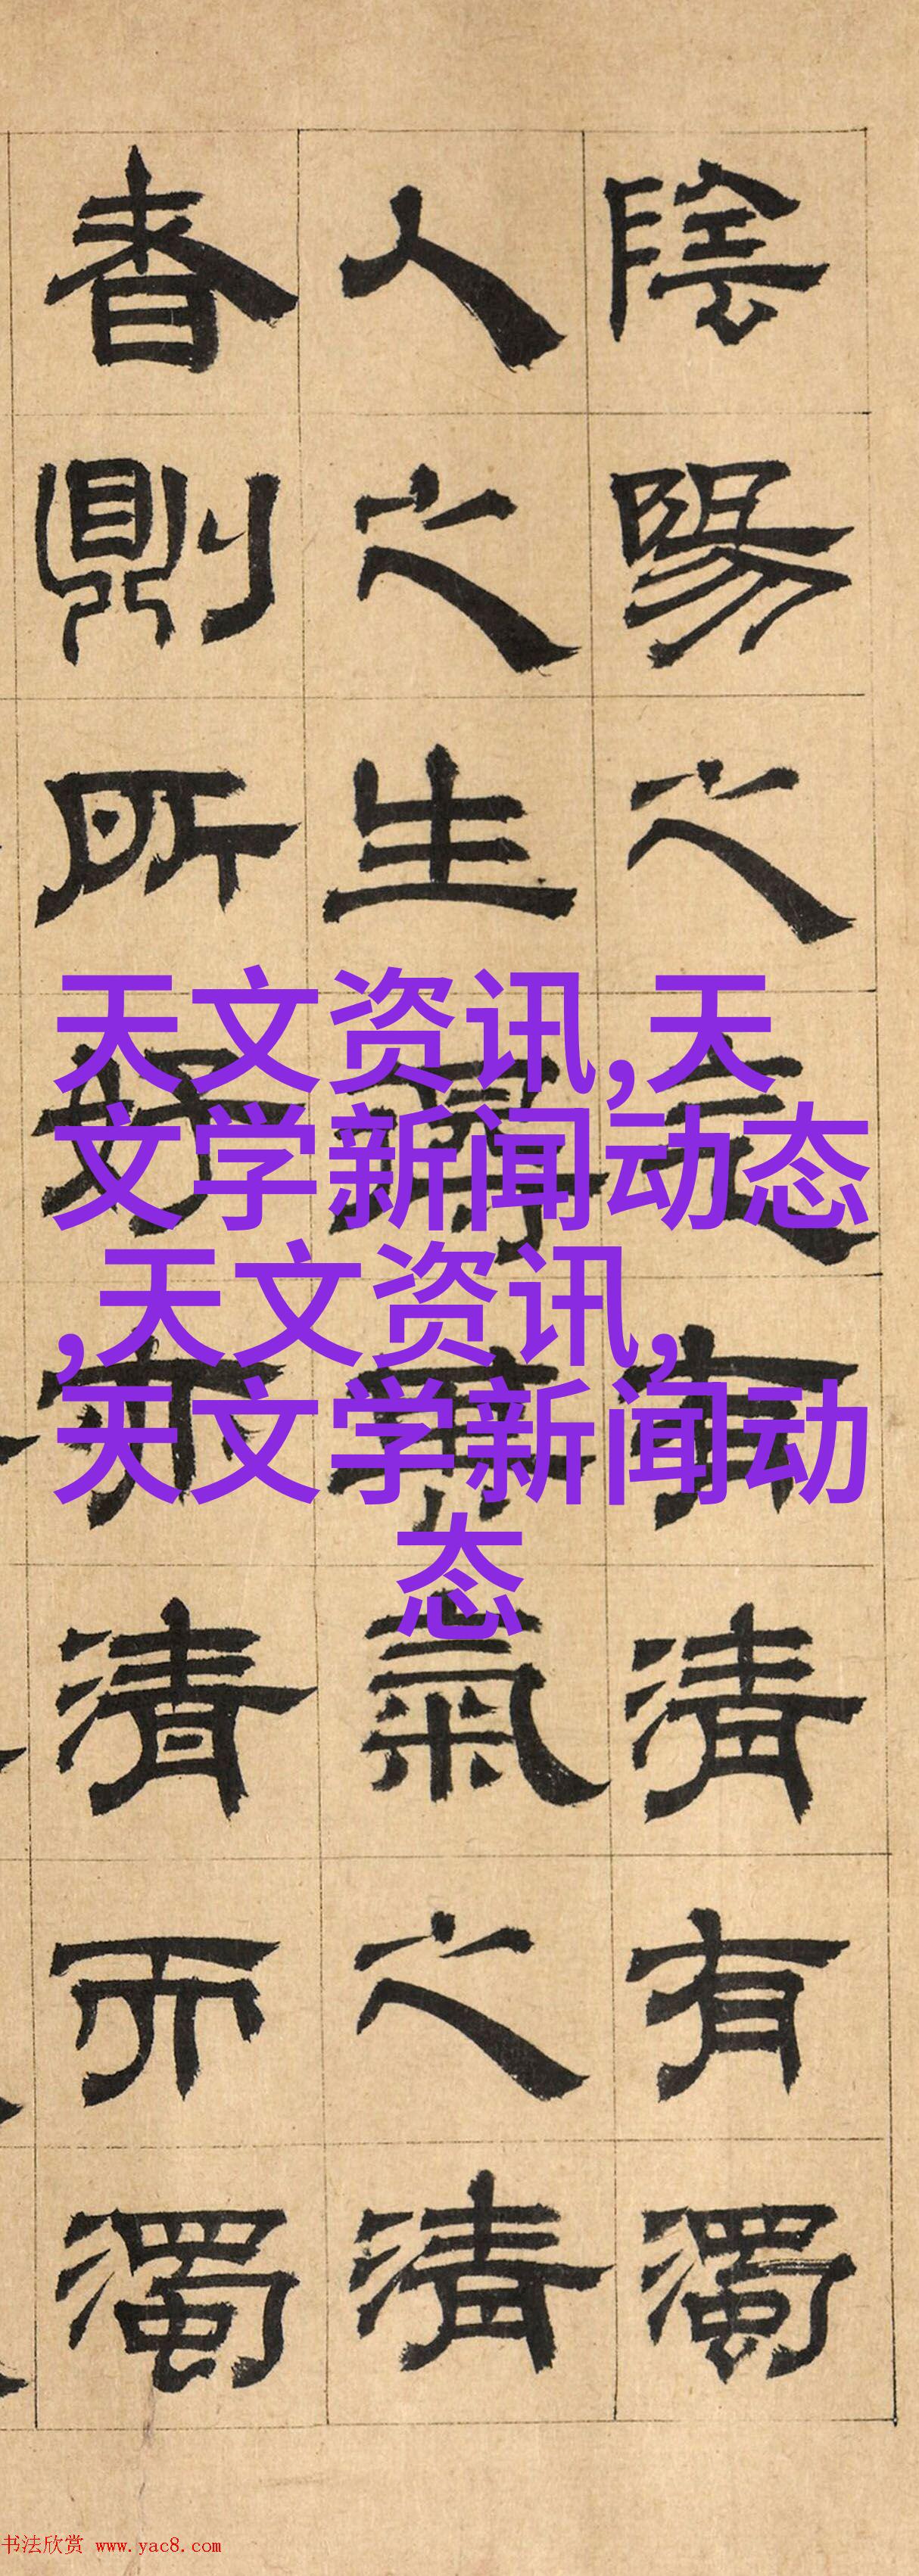 陰陽之气有清有濁
人之生氣之清
者則所好亦清而濁
天文资讯,天
文学新闻动态
,天文资讯,
天文学新闻动
态
书法欣赏 www.yac8.com